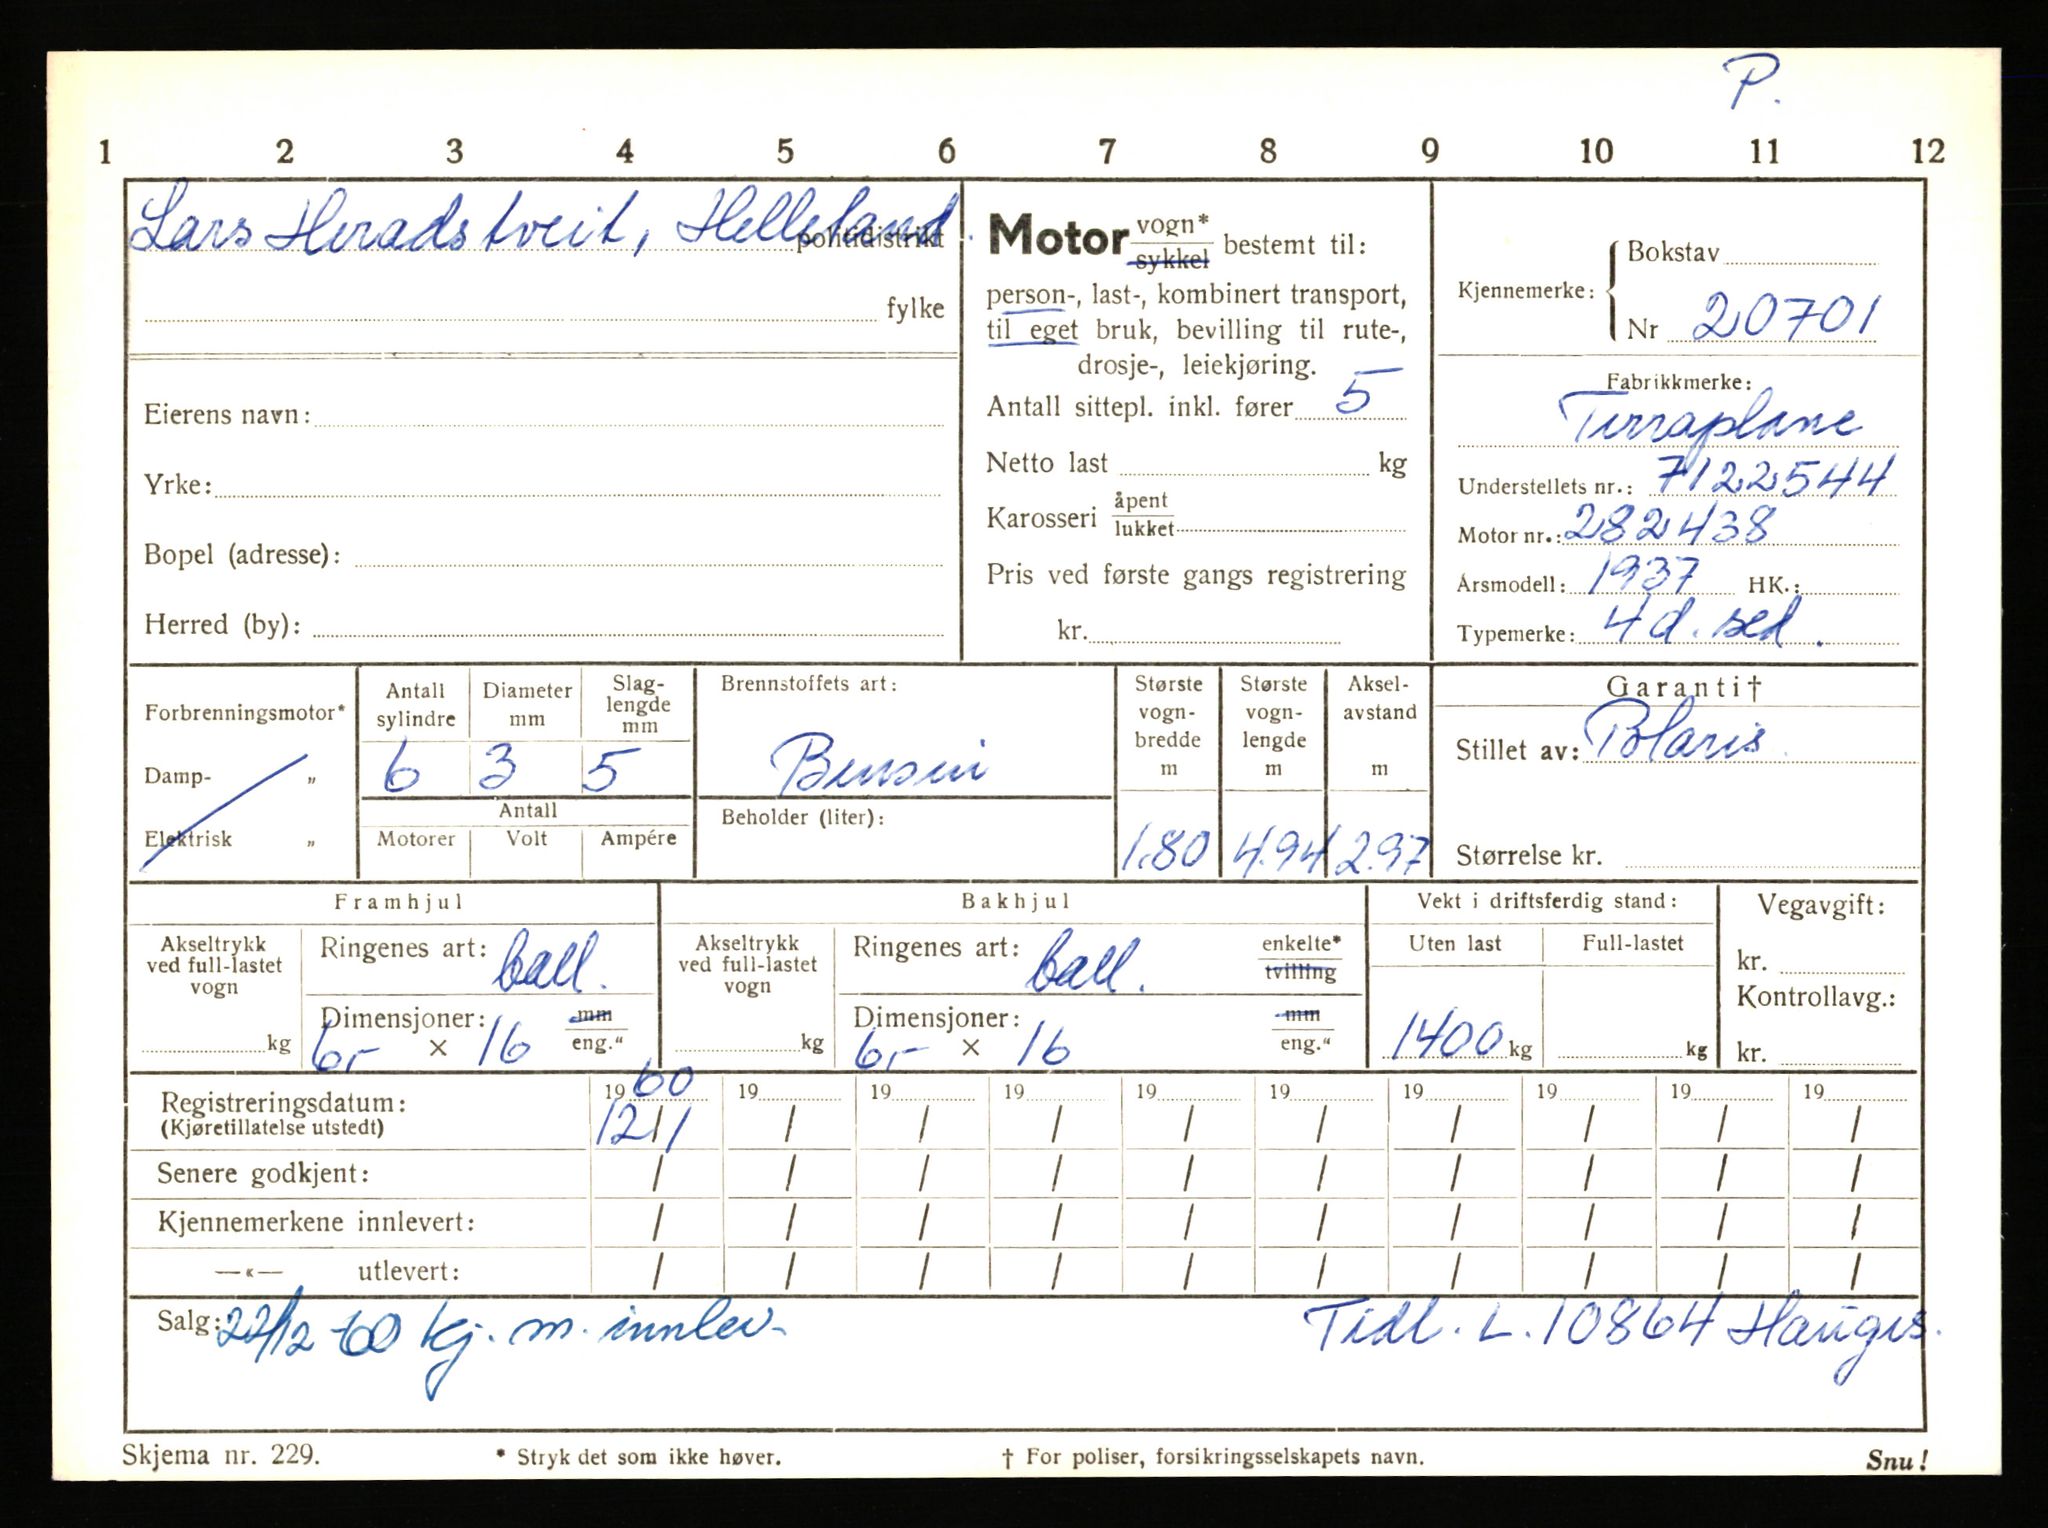 P.
1 2 3 4 5 6 7 8 9 10 11 12
Lars Heradstveit, Helleland.
politidistrikt
fylke
Eierens navn:
Yrke:
Bopel (adresse):
Herred (by):
Motor vogn* sykkel bestemt til:
person-, last-, kombinert transport,
til eget bruk, bevilling til rute-,
drosje-, leiekjøring.
Antall sittepl. inkl. fører 5
Netto last kg
Karosseri åpent lukket
Pris ved første gangs registrering
kr.
Kjennemerke: Bokstav
Nr 20701
Fabrikkmerke:
Terraplane
Understellets nr.: 7122544
Motor nr.: 282438
Årsmodell: 1937 HK.:
Typemerke: 4 d. sed.
Forbrenningsmotor*
Damp- „
Elektrisk „
Antall sylindre
6
Diameter mm
3
Slag-
lengde
mm
5
Antall
Motorer Volt Ampére
Brennstoffets art:
Bensin
Beholder (liter):
Største
vogn-
bredde
m
1.80
Største
vogn-
lengde
m
4.94
Aksel-
avstand
m
2.97
Garanti†
Stillet av: Polaris
Størrelse kr.
Framhjul
Akseltrykk
ved full-lastet
vogn
kg
Ringenes art: ball.
Dimensjoner: mm
6,- × 16 eng.“
Bakhjul
Akseltrykk
ved full-lastet
vogn
kg
Ringenes art: ball. enkelte* tvilling
Dimensjoner: mm
6,- × 16 eng.“
Vekt i driftsferdig stand:
Uten last Full-lastet
1400 kg kg
Vegavgift:
kr.
Kontrollavg.:
kr.
Registreringsdatum: 1960 19 19 19 19 19 19 19 19 19
(Kjøretillatelse utstedt) 12/1 / / / / / / / / /
Senere godkjent: / / / / / / / / / /
Kjennemerkene innlevert: / / / / / / / / / /
—«— utlevert: / / / / / / / / / /
Salg: 22/12-60 kj. m. innlev- Tidl. L.10864 Hauges.
Skjema nr. 229. * Stryk det som ikke høver. † For poliser, forsikringsselskapets navn. Snu!